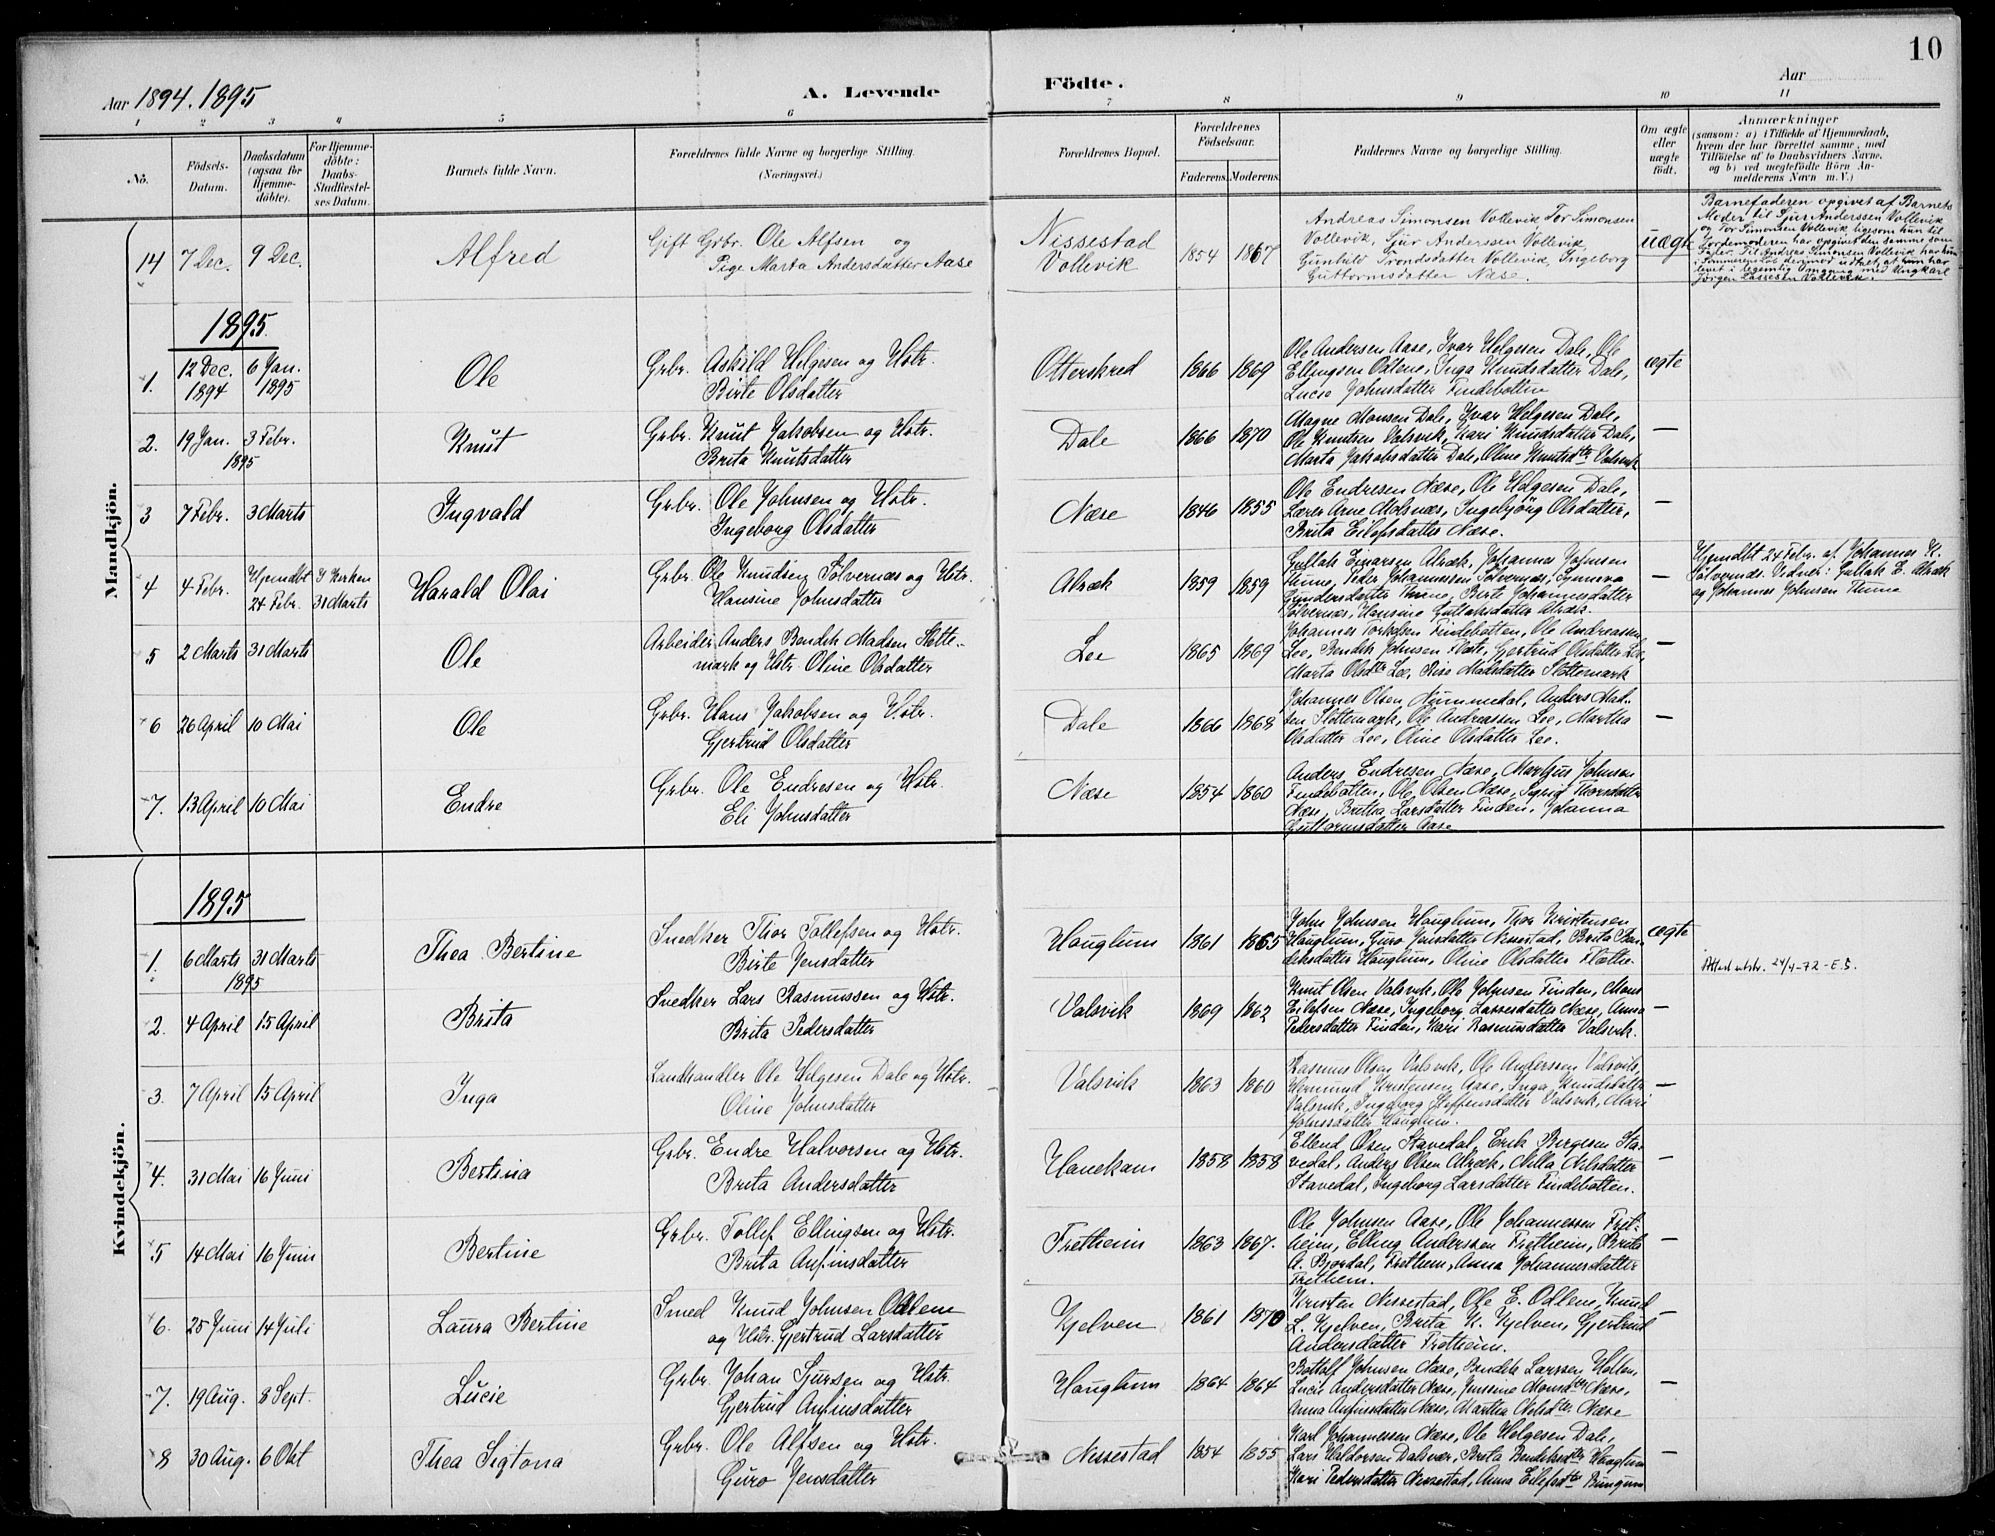 10
Aar 1894. 1895
A. Levende
Födte.
Aar
1 2 3 4 5 6 7 8 9 10 11
No.
Födsels-
Datum.
Daabsdatum
(ogsaa for
Hjemme-
döbte).
For Hjemme-
döbte:
Daabs-
Stadfæstel-
ses Datum.
Barnets fulde Navn.
Forældrenes fulde Navne og borgerlige Stilling.
(Næringsvei.)
Forældrenes Bopæl.
Forældrenes
Födselsaar.
Faderens. Moderens.
Faddernes Navne og borgerlige Stilling.
Om ægte
eller
uægte
födt.
Anmærkninger
(saasom: a) i Tilfælde af Hjemmedaab,
hvem der har forrettet samme, med
Tilföielse af to Daabsvidners Navne,
og b) ved uægtefödte Börn An-
melderens Navn m. V.)
Mandkjön.
14 7 Dec. 9 Dec. Alfred
Gift Grbr. Ole Alfsen og
Pige Marta Andersdatter Aase
Nissestad
Vollevik
1854 1867
Andreas Simonsen Vollevik Tor Simonsen
Vollevik, Sjur Anderssen Vollevik,
Gunhild Trondsdatter Vollevik, Ingeborg
Guttormsdatter Næse.
uægte
Barnefaderen opgivet af Barnets
Moder til Sjur Anderssen Vollevik
og Tor Simonsen Vollevik ligesom hun til
Jordemoderen har opgivet den samme som
Fader. Til Andreas Simonsen Vollevik har hun
i Sommeren derimod udtalt, at hun har
levet i legemlig Omgang med Ungkarl
Jörgen Lassesen Vollevik.
1895
1. 12 Dec. 1894 6 Jan. 1895 Ole
Grbr. Askild Helgesen og Hstr.
Birte Olsdatter
Otterskred 1866 1869
Ole Andersen Aase, Ivar Helgesen Dale, Ole
Ellingsen Odlene, Inga Knudsdatter Dale,
Lucie Johnsdatter Findebotten
ægte
2. 19 Jan. 3 Febr. 1895 Knut
Grbr. Knut Jakobsen og Hstr.
Brita Knutsdatter
Dale 1866 1870
Magne Monsen Dale, Ivar Helgesen Dale,
Ole Knutsen Valsvik, Kari Knudsdatter Dale,
Marta Jakobsdatter Dale, Oline Knutsdtr Valsvik
—
3 7 Febr. 3 Marts Ingvald
Grbr. Ole Johnsen og Hstr.
Ingeborg Olsdatter
Næse 1846 1855
Ole Endresen Næse, Ole Helgesen Dale,
Lærer Arne Molsnæs, Ingebjörg Olsdatter,
Brita Eilefsdatter Næse.
—
4 4 Febr. Hjemdbt 24 Febr. I Kirken 31 Marts Harald Olai
Grbr. Ole Knudsen Sölvernæs og Hstr.
Hansine Johnsdatter
Alræk 1859 1859
Gullak Einarsen Alræk, Johannes Johnsen
Thune, Peder Johannessen Sölvernæs, Synneva
Gundersdatter Thune, Birte Johannesdatter
Sölvernæs, Hansine Gullaksdatter Alræk.
—
Hjemdbt 24 Febr. af Johannes K.
Sölvernæs. Vidner: Gullak E. Alræk
og Johannes Johnsen Thune
5 2 Marts 31 Marts Ole
Arbeider Anders Bendik Madsen Slotte-
mark og Hstr. Oline Olsdatter
Lee 1865 1869
Johannes Torkelsen Findebotten, Ole Andreassen
Lee, Bendik Johnsen Flæte, Gjertrud Olsdatter Lee,
Marta Olsdtr Lee, Risa Madsdatter Slottemark
—
6 26 April 10 Mai Ole
Grbr. Hans Jakobsen og Hstr.
Gjertrud Olsdatter
Dale 1866 1868
Johannes Olsen Nummedal, Anders Mad-
sen Slottemark, Ole Andreassen Lee, Martha
Olsdatter Lee, Oline Olsdatter Lee.
—
7. 13 April 10 Mai Endre
Grbr. Ole Endresen og Hstr.
Eli Johnsdatter
Næse 1854 1860
Anders Endresen Næse, Markus Johnson
Findebotten, Ole Olsen Næse, Sigrid Thorsdatter
Næse, Britha Larsdatter Finden, Johanna
Guttormsdatter Aase
Kvindekjön.
1895
1. 6 Marts 31 Marts 1895 Thea Bertine
Snedker Thor Tollefsen og Hstr.
Birte Jensdatter
Hauglum 1861 1865
John Johnsen Hauglum, Thor Kristensen
Hauglum, Guro Jensdatter Nissestad, Brita Ben-
diksdatter Hauglum, Oline Olsdatter Flætten.
ægte
Attest utstr. 24/4-72-E.S.
2. 4 April 15 April Brita
Snedker Lars Rasmussen og Hstr.
Brita Pedersdatter
Valsvik 1869 1862
Knut Olsen Valsvik, Ole Johnsen Finden, Mons
Eilefsen Næse, Ingeborg Lassesdatter Næse, Anna
Pedersdatter Finden, Kari Rasmusdatter Valsvik.
—
3. 7 April 15 April Inga
Landhandler Ole Helgesen Dale og Hstr.
Oline Johnsdatter
Valsvik 1863 1860
Rasmus Olsen Valsvik, Ole Anderssen Valsvik,
Hermund Kristensen Aase, Inga Knudsdatter
Valsvik, Ingeborg Steffensdatter Valsvik, Mari
Johnsdatter Hauglum.
—
4. 31 Mai 16 Juni Bertina
Grbr. Endre Halvorsen og Hstr.
Brita Andersdatter
Hanekam 1858 1858
Ellend Olsen Stavedal, Erik Børgesen Sta-
vedal, Anders Olsen Alræk, Nilla Nilsdatter
Stavedal, Ingeborg Larsdatter Findebotten.
—
5 14 Mai 16 Juni Bertine
Grbr. Tollef Ellingsen og Hstr.
Brita Anfinsdatter
Fretheim 1863 1867.
Ole Johnsen Aase, Ole Johannessen Fret-
heim, Elling Anderssen Fretheim, Brita
A. Bjordal, Frethem, Anna Johannesdatter
Frethem.
—
6. 25 Juni 14 Juli Laura Bertine
Smed Knud Johnsen Odlene
og Hstr. Gjertrud Larsdatter
Kjelven 1861 1870
Kristen Nissestad, Ole E. Odlene, Knud
L. Kjelven, Brita K. Kjelven, Gjertrud
Andersdatter Fretheim.
—
7. 19 Aug. 8 Sept. Lucie
Grbr. Johan Sjursen og Hstr.
Gjertrud Anfinsdatter
Hauglum 1864 1864
Bottolf Johnsen Næse, Bendik Larssen Holten,
Lucie Andersdatter Næse, Jensine Monsdtr Næse,
Anna Anfinsdatter Næse, Martha Nilsdtr Næse
—
8 30 Aug. 6 Okt Thea Sigtona
Grbr. Ole Alfsen og Hstr.
Guro Jensdatter
Nissestad 1854 1855
Karl Johannessen Næse, Ole Helgesen Dale,
Lars Haldorsen Dalsvær, Brita Bendiksdtr Hauglum
Kari Pedersdatter Nissestad, Anna Eilefsdtr Bungum
—